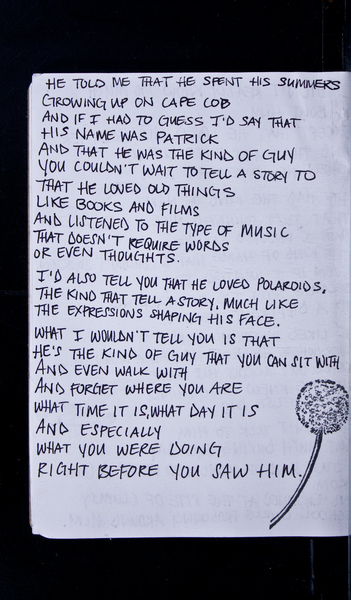 HE TOLD ME THAT HE SPENT HIS SUMMERS
GROWING UP ON CAPE COD
AND IF I HAD TO GUESS I'D SAY THAT
HIS NAME WAS PATRICK
AND THAT HE WAS THE KIND OF GUY
YOU COULDN'T WAIT TO TELL A STORY TO
THAT HE LOVED OLD THINGS
LIKE BOOKS AND FILMS
AND LISTENED TO THE TYPE OF MUSIC
THAT DOESN'T REQUIRE WORDS
OR EVEN THOUGHTS.
I'D ALSO TELL YOU THAT HE LOVED POLAROIDS,
THE KIND THAT TELL A STORY, MUCH LIKE
THE EXPRESSIONS SHAPING HIS FACE.
WHAT I WOULDN'T TELL YOU IS THAT
HE'S THE KIND OF GUY THAT YOU CAN SIT WITH
AND EVEN WALK WITH
AND FORGET WHERE YOU ARE
WHAT TIME IT IS, WHAT DAY IT IS
AND ESPECIALLY
WHAT YOU WERE DOING
RIGHT BEFORE YOU SAW HIM.